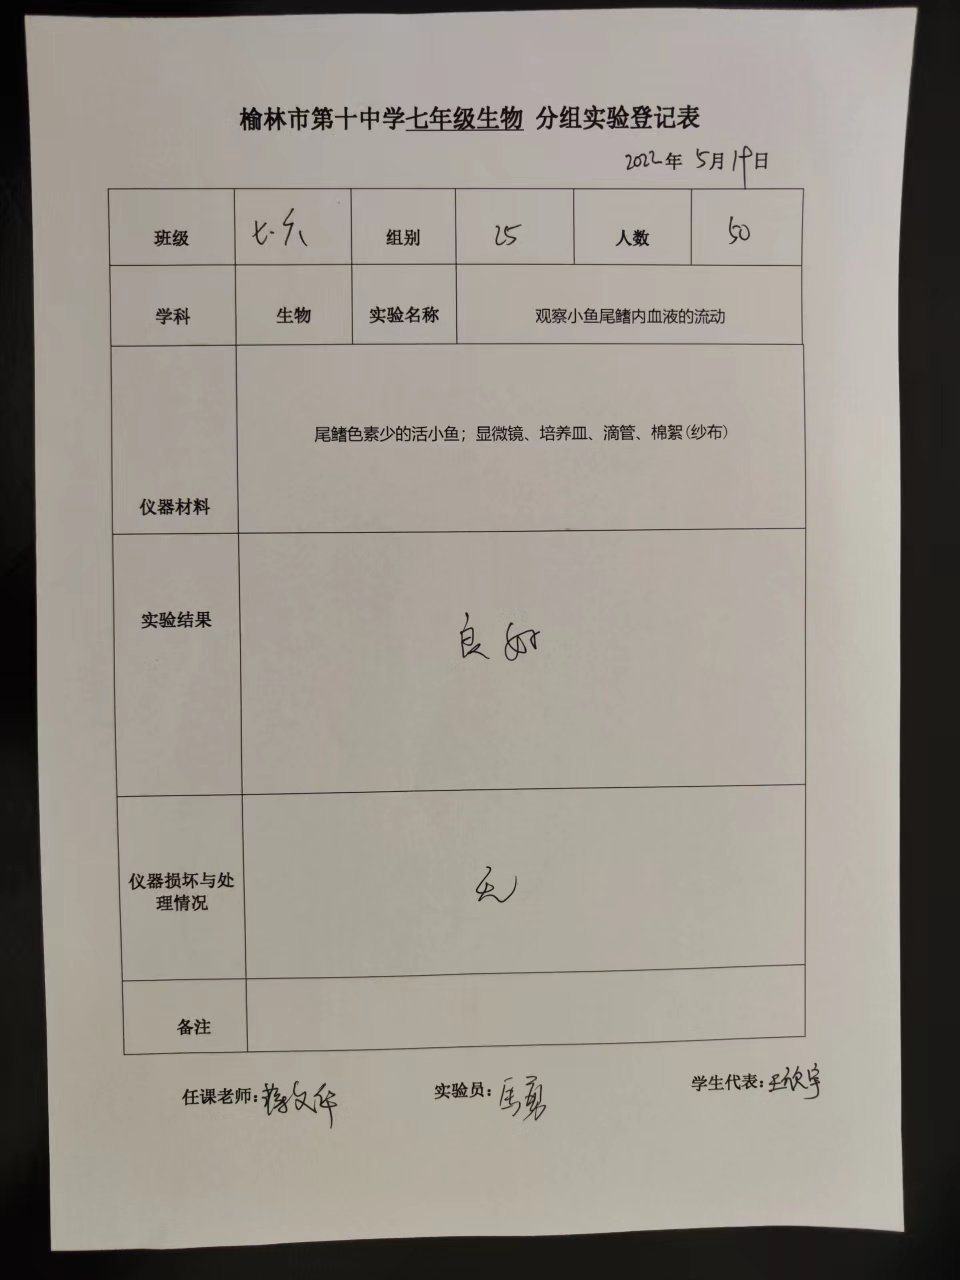 榆林市第十中学七年级生物 分组实验登记表
2022年 5月19日
班级 七.六 组别 25 人数 50
学科 生物 实验名称 观察小鱼尾鳍内血液的流动
仪器材料 尾鳍色素少的活小鱼；显微镜、培养皿、滴管、棉絮(纱布)
实验结果 良好
仪器损坏与处
理情况 无
备注
任课老师: 实验员: 马勇 学生代表: 王欣宇